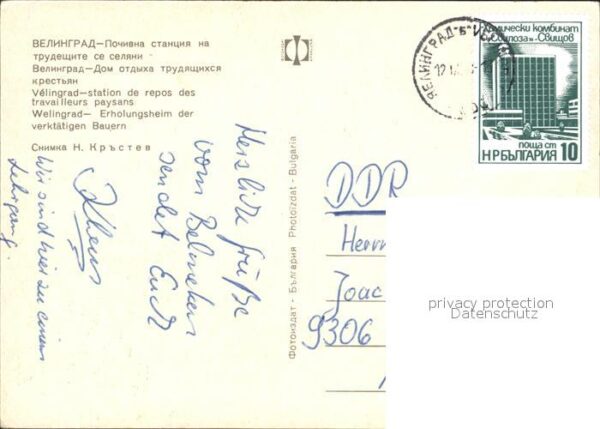 ВЕЛИНГРАД—Почивна станция на
трудещите се селяни
Велинград—Дом отдыха трудящихся
крестьян
Vélingrad—station de repos des
travailleurs paysans
Welingrad— Erholungsheim der
verktätigen Bauern
Снимка Н. Кръстев
Herzliche Grüße
vom
sendet Euch
Wir sind hier zu einem
Lehrgang.
Фотоиздат - България Photoizdat - Bulgaria
ВЕЛИНГРАД
Химически комбинат
„Свилоза"–Свищов
поща ст
НРБЪЛГАРИЯ 10
DDR
Herrn
Joac
9306
privacy protection
Datenschutz